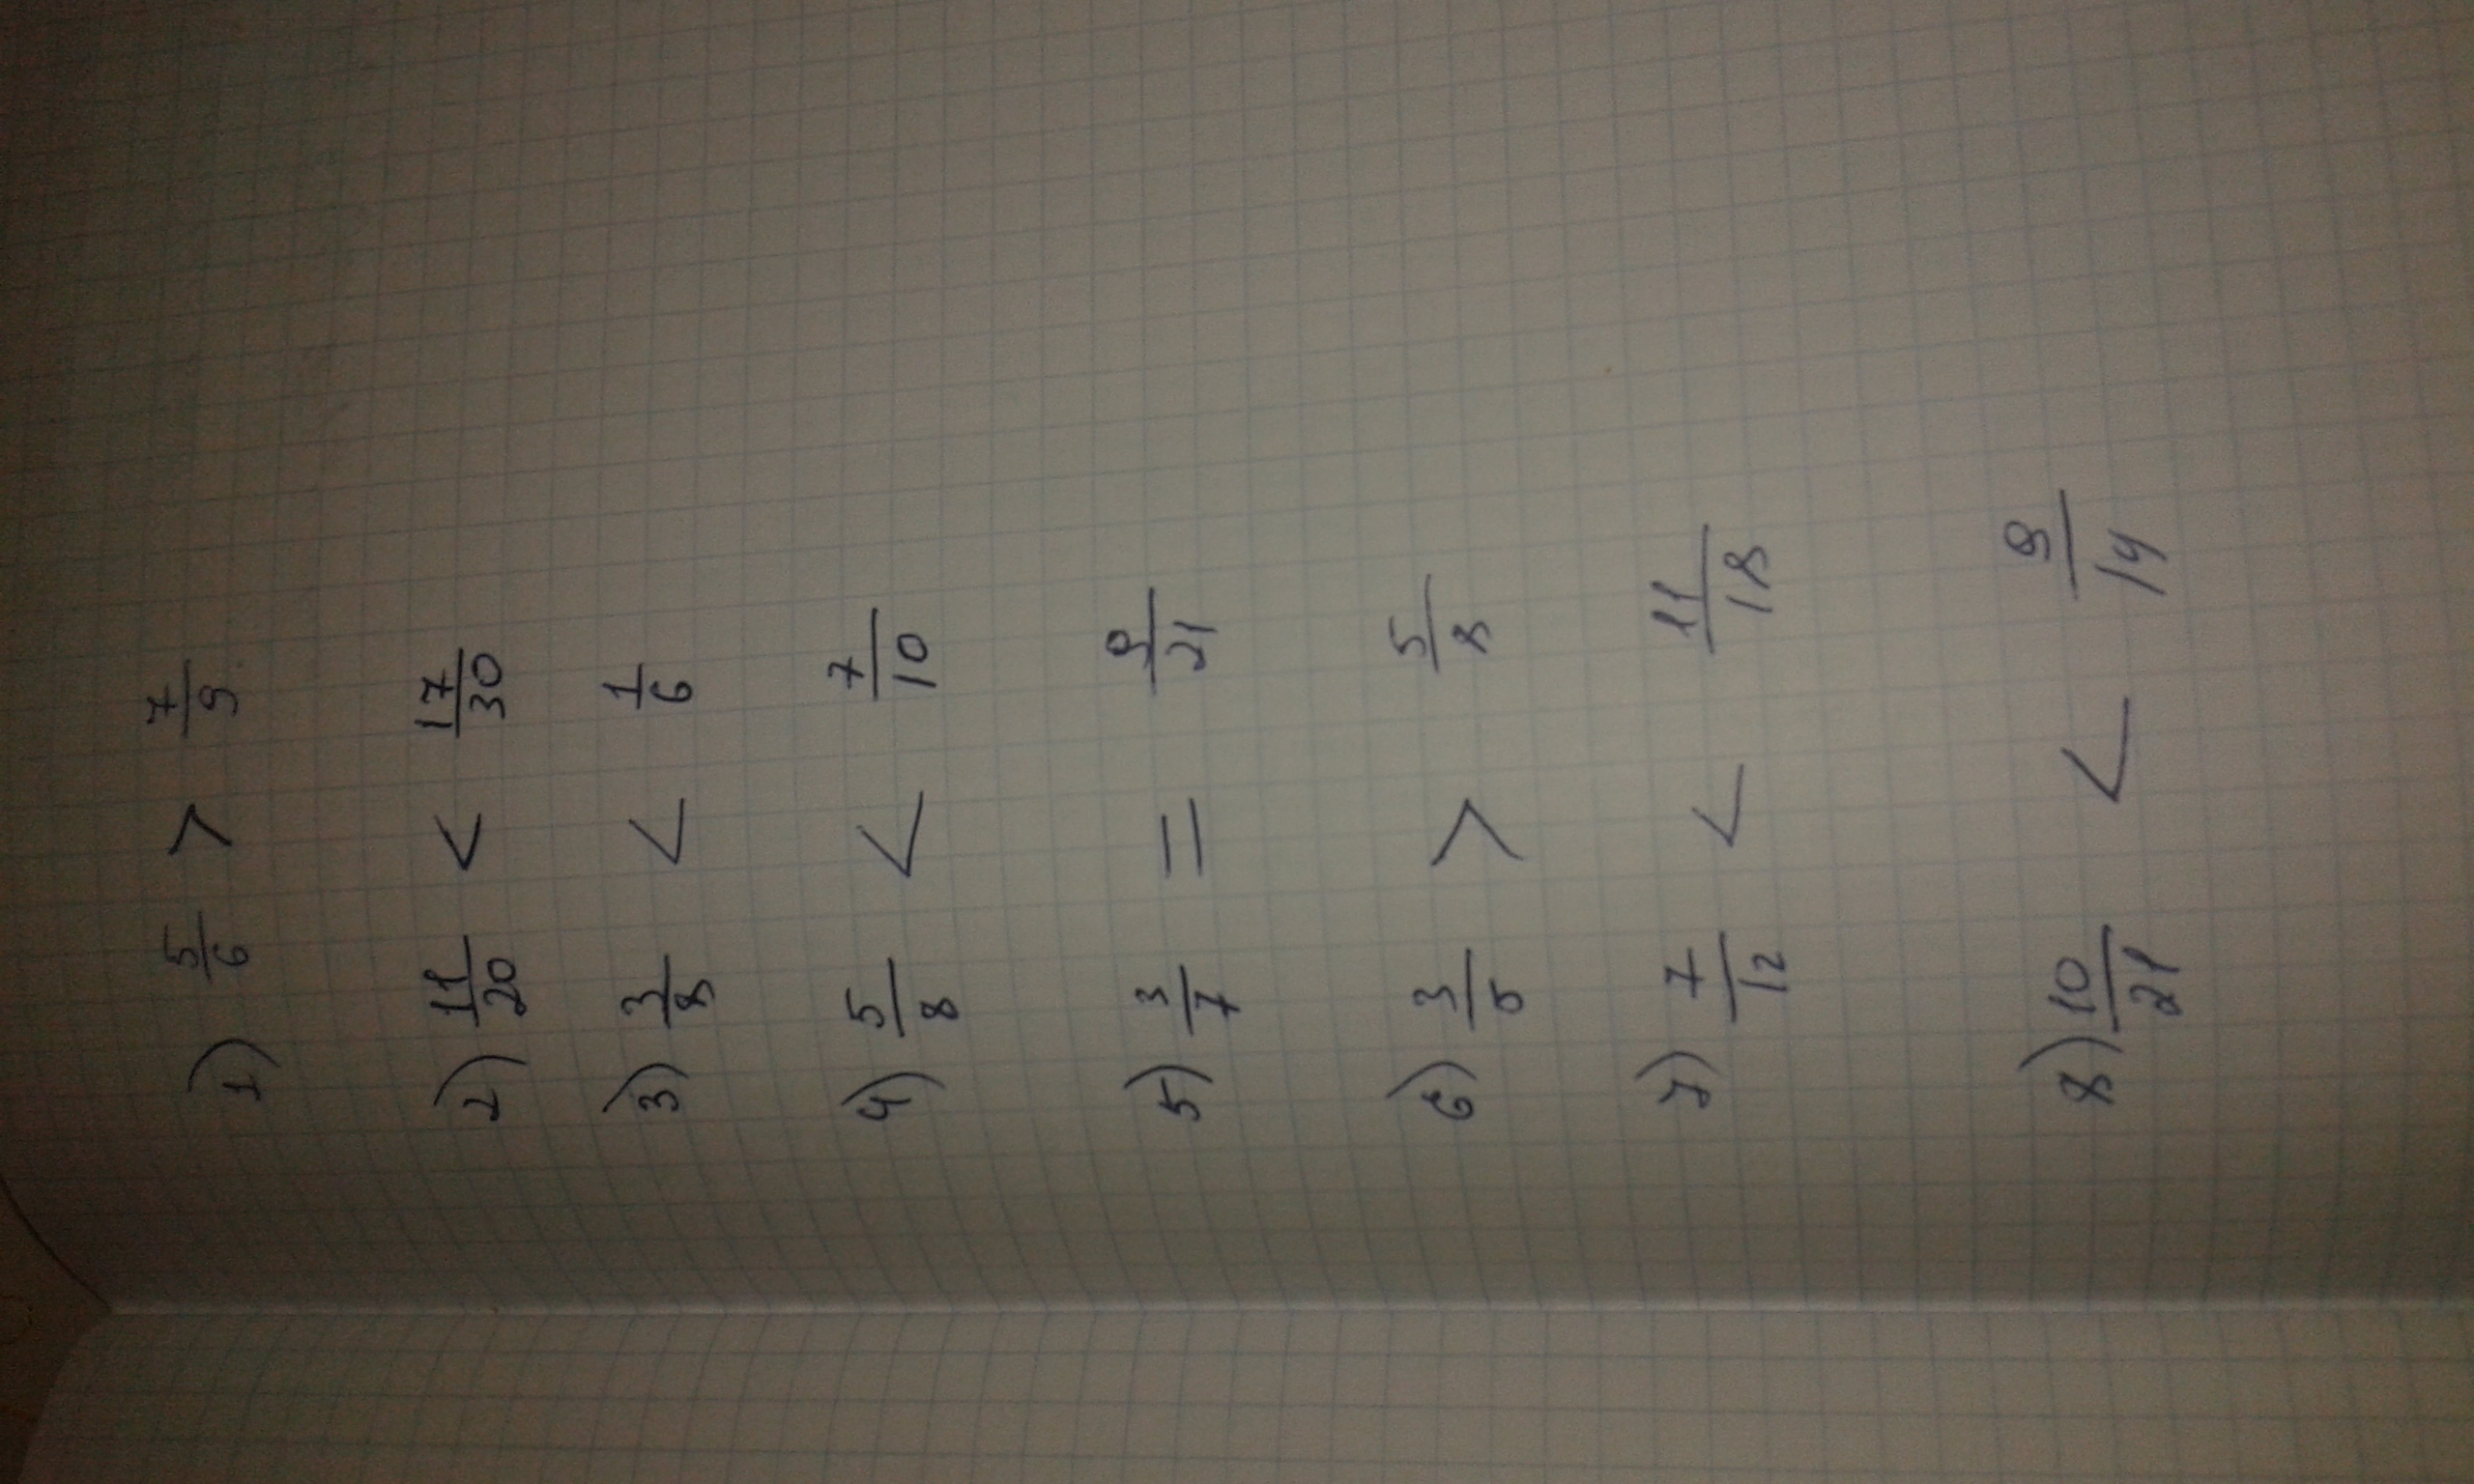 1) 5/6 > 7/9
2) 11/20 < 17/30
3) 3/8 < 1/6
4) 5/8 < 7/10
5) 3/7 = 9/21
6) 3/5 > 5/8
7) 7/12 < 11/18
8) 10/21 < 9/14